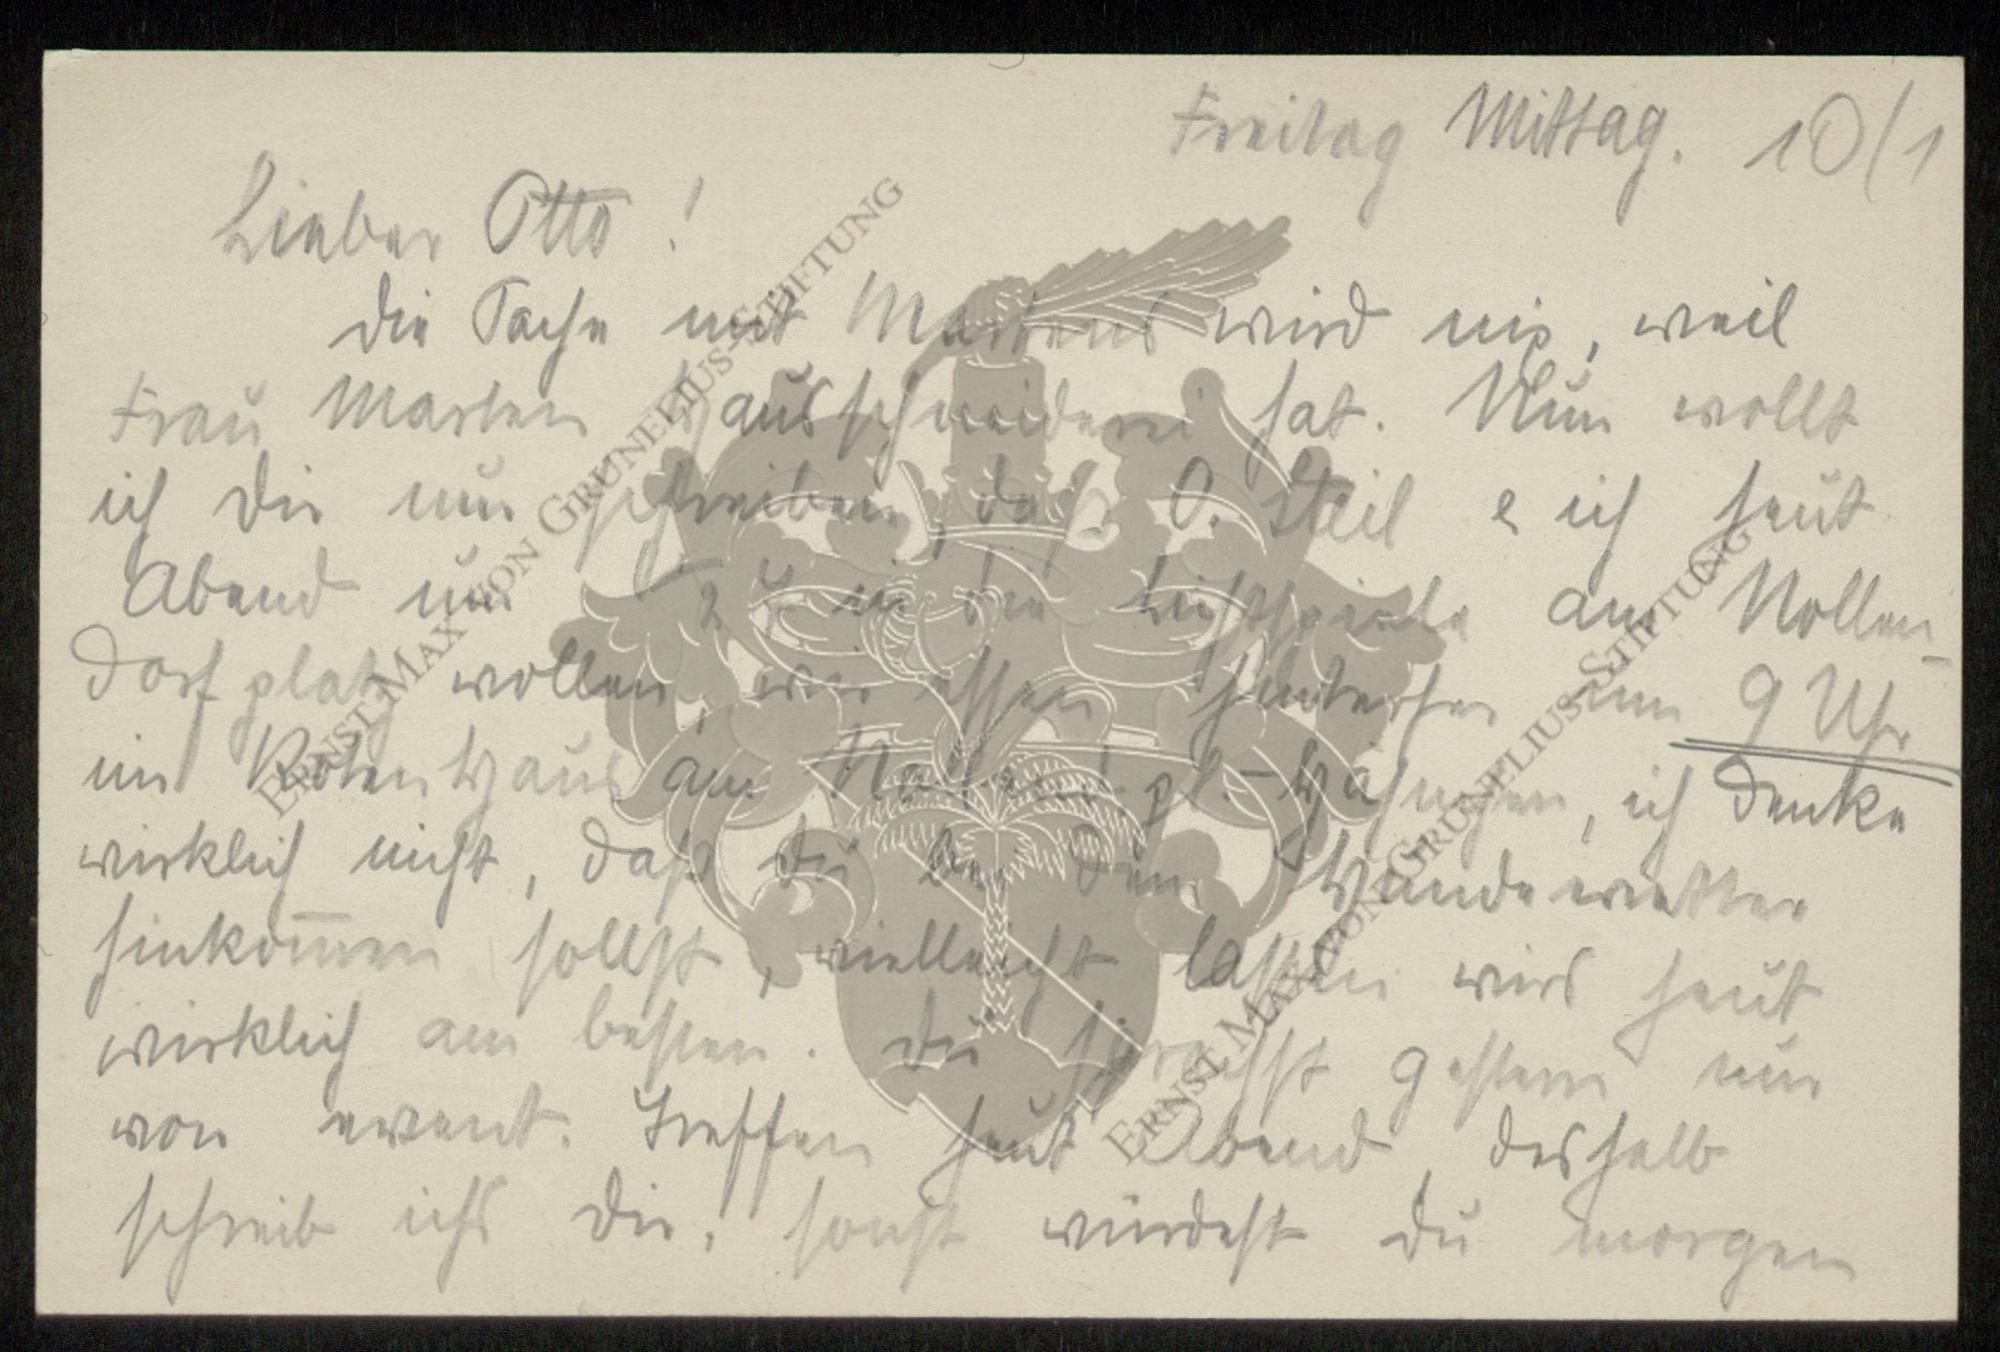 Freitag Mittag. 10/1
Lieber Otto!
die Sache mit Martens wird nix, weil
Frau Marten Hausschneiderei hat. Nun wollt
ich dir nun schreiben, daß O. Steil & ich heut
Abend um in die Lichtspiele am Nollen-
dorfplatz wollen, wir essen hinterher um 9 Uhr
im Roten Haus am Nollend.pl., ich denke
wirklich nicht, daß du bei dem
hinkom̅en sollst, vielleicht lassen wirs heut
wirklich am besten. du sprachst gestern nur
von event. Treffen heut Abend, deshalb
schreib ichs dir, sonst würdest du morgen
ERNST MAX VON GRUNELIUS-STIFTUNG
ERNST MAX VON GRUNELIUS-STIFTUNG